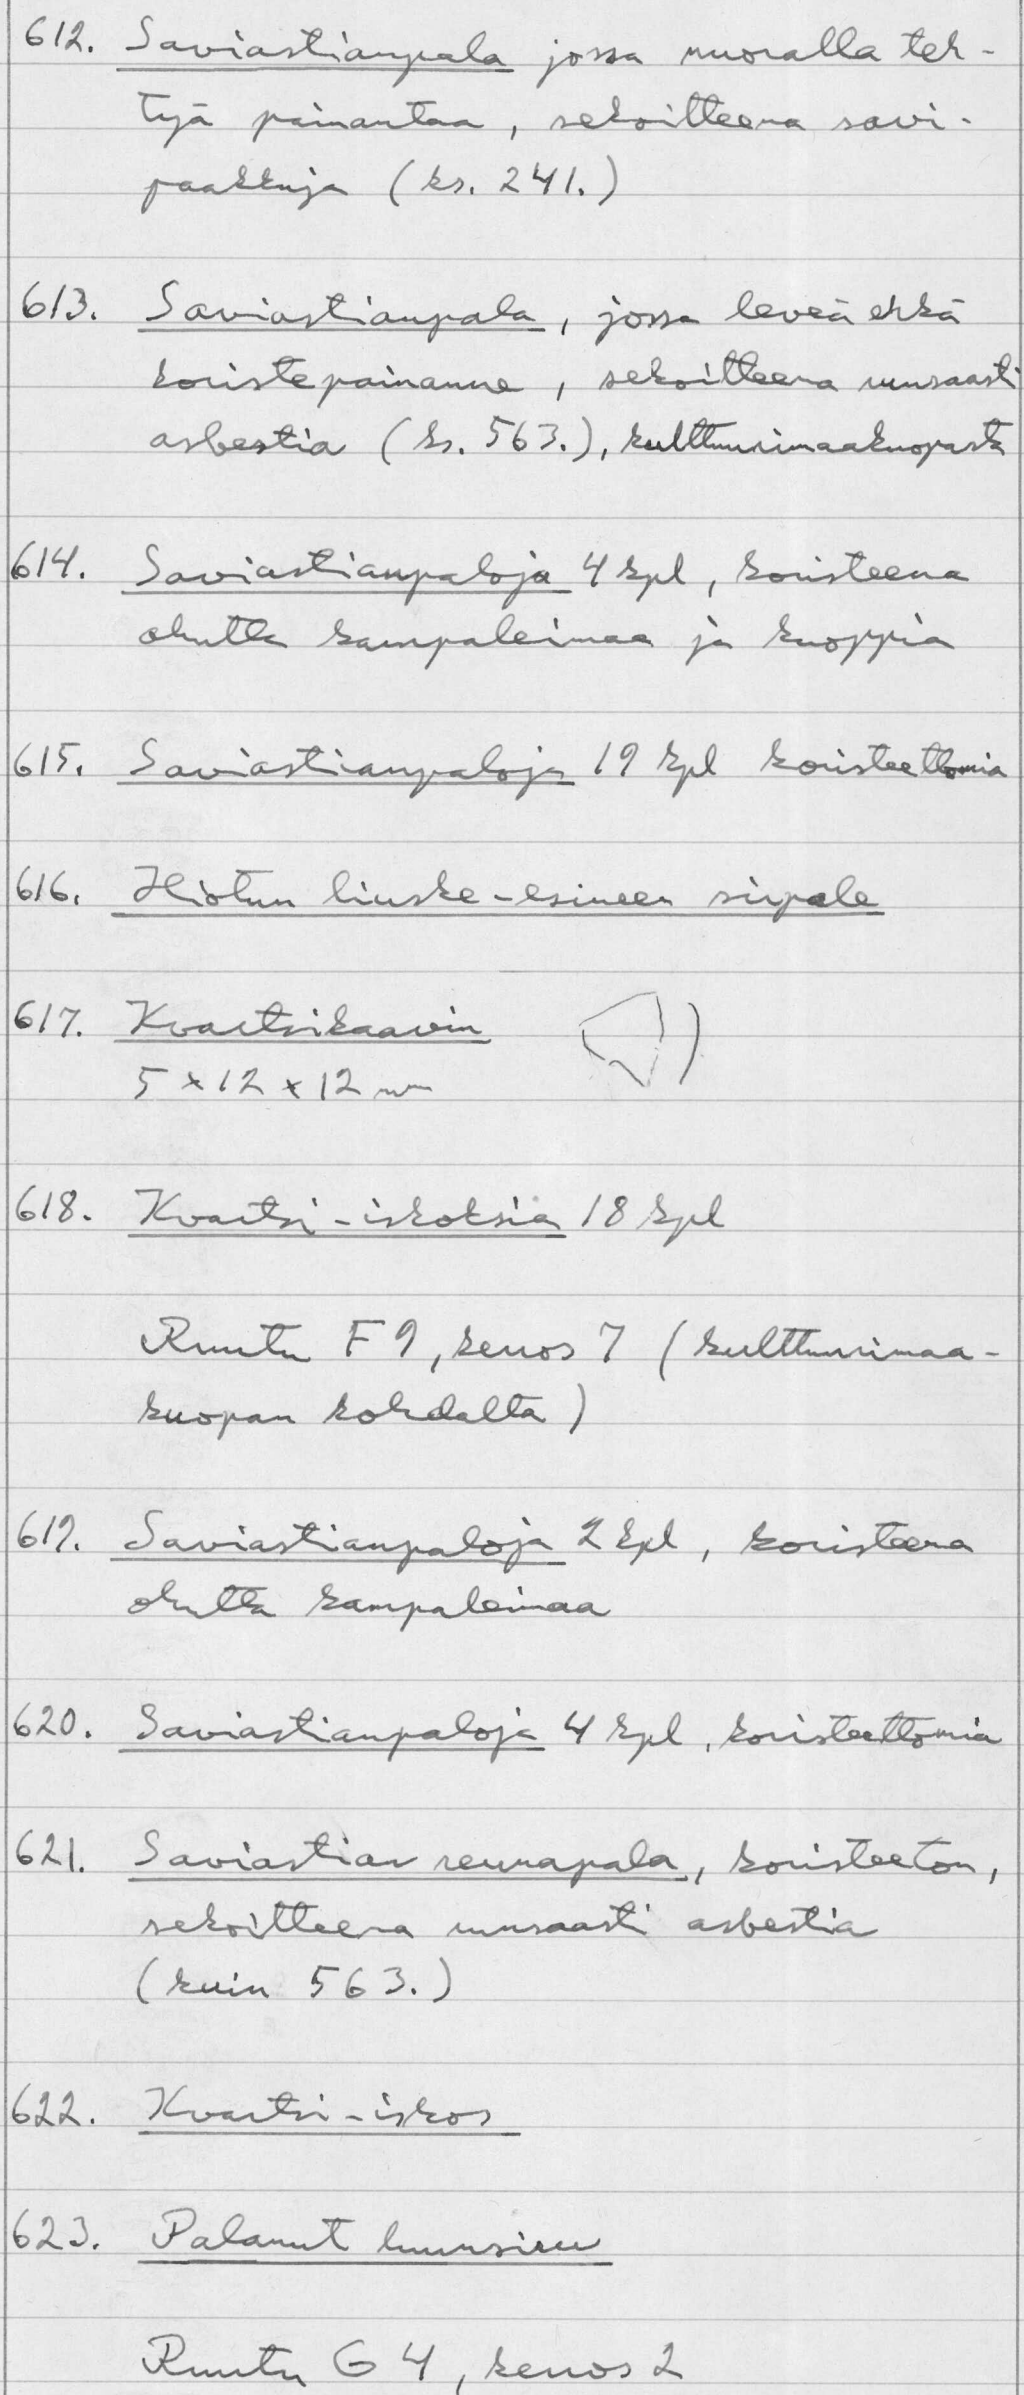 612. Saviastianpala jossa nuoralla teh-
tyä painantaa, sekoitteena savi-
paakkuja (ks. 241.)
613. Saviastianpala, jossa leveä ehkä
koristepainanne, sekoitteena runsaasti
asbestia (ks. 563.), kulttuurimaakuopasta
614. Saviastianpaloja 4 kpl, koristeena
ohutta kampaleimaa ja kuoppia
615. Saviastianpaloja 19 kpl koristeettomia
616. Hiotun liuske-esineen sirpale
617. Kvartsikaavin
5 x 12 x 12 mm
618. Kvartsi-iskoksia 18 kpl
Ruutu F 9, kerros 7 (kulttuurimaa-
kuopan kohdalta)
619. Saviastianpaloja 2 kpl, koristeena
ohutta kampaleimaa
620. Saviastianpaloja 4 kpl, koristeettomia
621. Saviastian reunapala, koristeeton,
sekoitteena runsaasti asbestia
(kuin 563.)
622. Kvartsi-iskos
623. Palanut luunsiru
Ruutu G 4, kerros 2